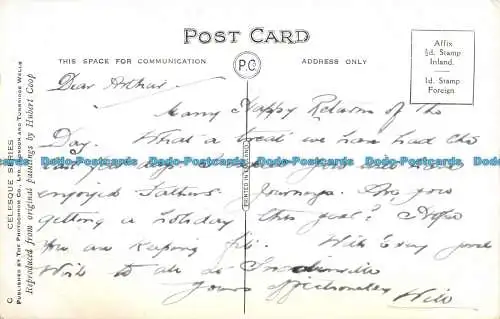 POST CARD
THIS SPACE FOR COMMUNICATION
P.C
ADDRESS ONLY
Affix
½d. Stamp
Inland.
1d. Stamp
Foreign.
CELESQUE SERIES
PUBLISHED BY THE PHOTOCHROM CO., LTD., LONDON AND TUNBRIDGE WELLS
Reproduced from original paintings by Hubert Coop
C
PRINTED IN ENGLAND
Dear Arthur
Many Happy Returns of the
Day. What a treat we have had this
enjoyed Fathers Journeys. Are you
getting a holiday this year? Hope
you are keeping fit. With Every good
Wish to all at
Yours affectionately Will
Dodo-Postcards Dodo-Postcards Dodo-Postcards Dodo-Postcards Dodo-Postcards